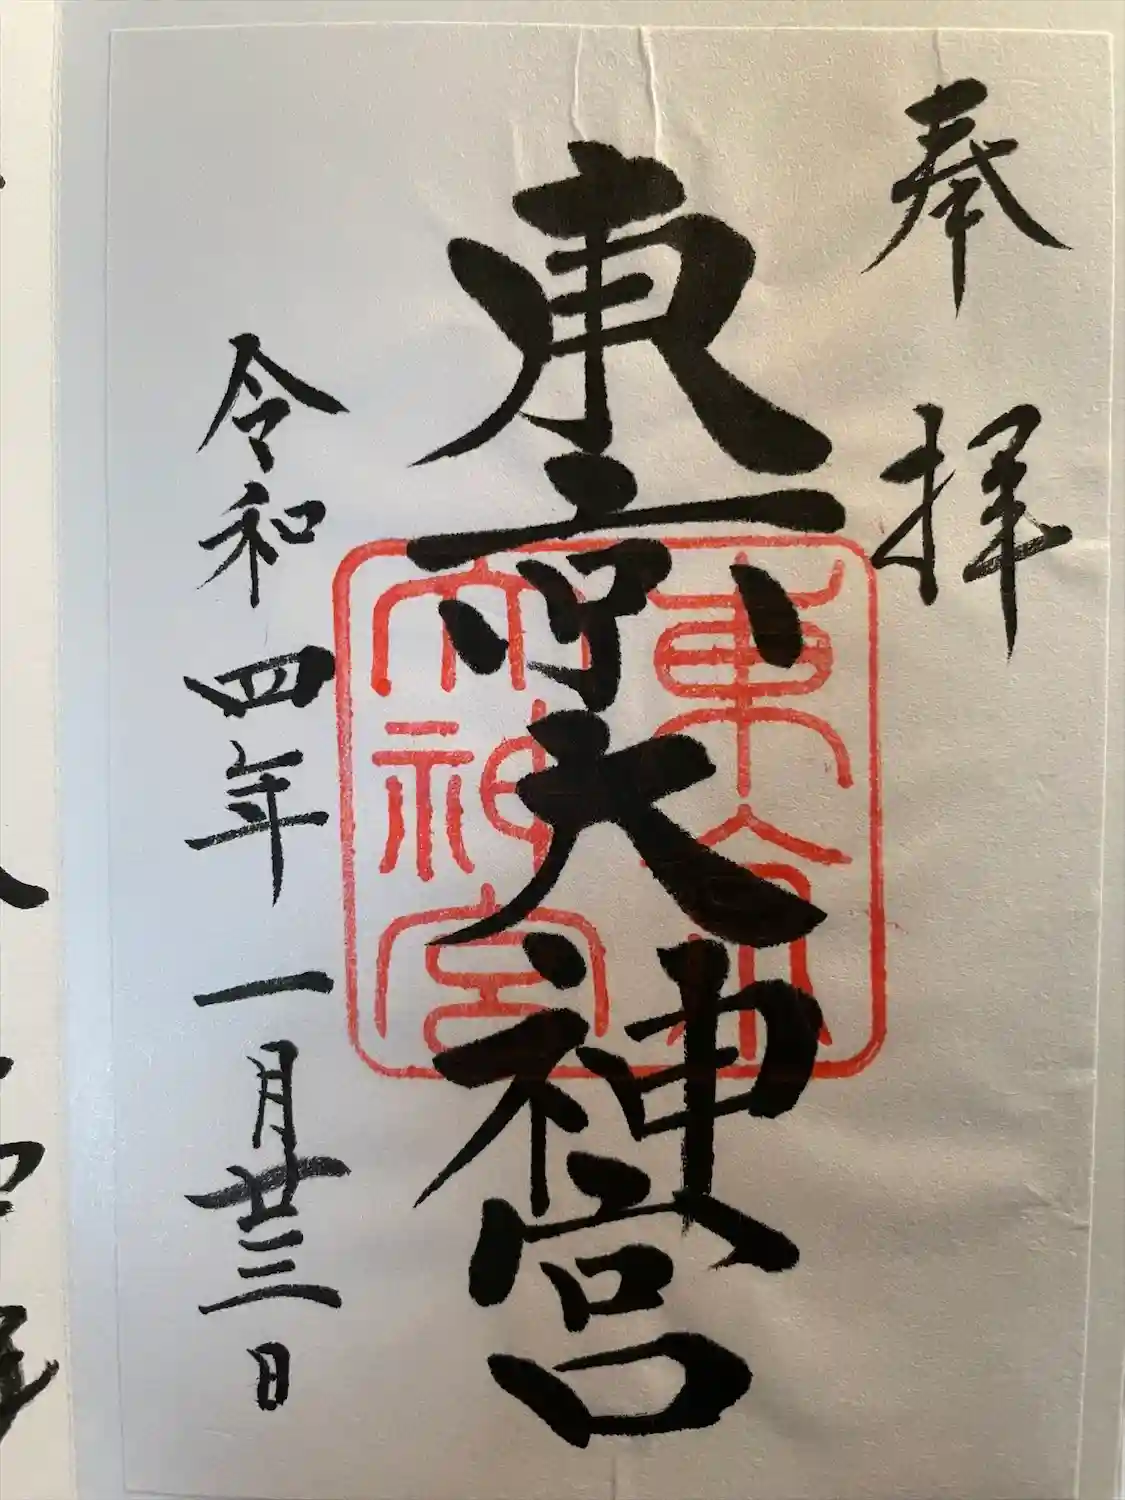 奉拝
東京大神宮
東京
大神宮
令和四年一月廿三日